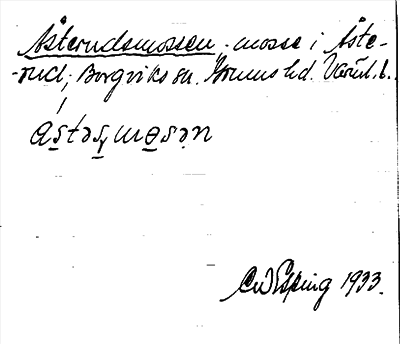 Åsterudsmossen, mosse i Åste-
-rud, Borgviks sn. Grums hd. Värml. l.
C W Esping 1933.